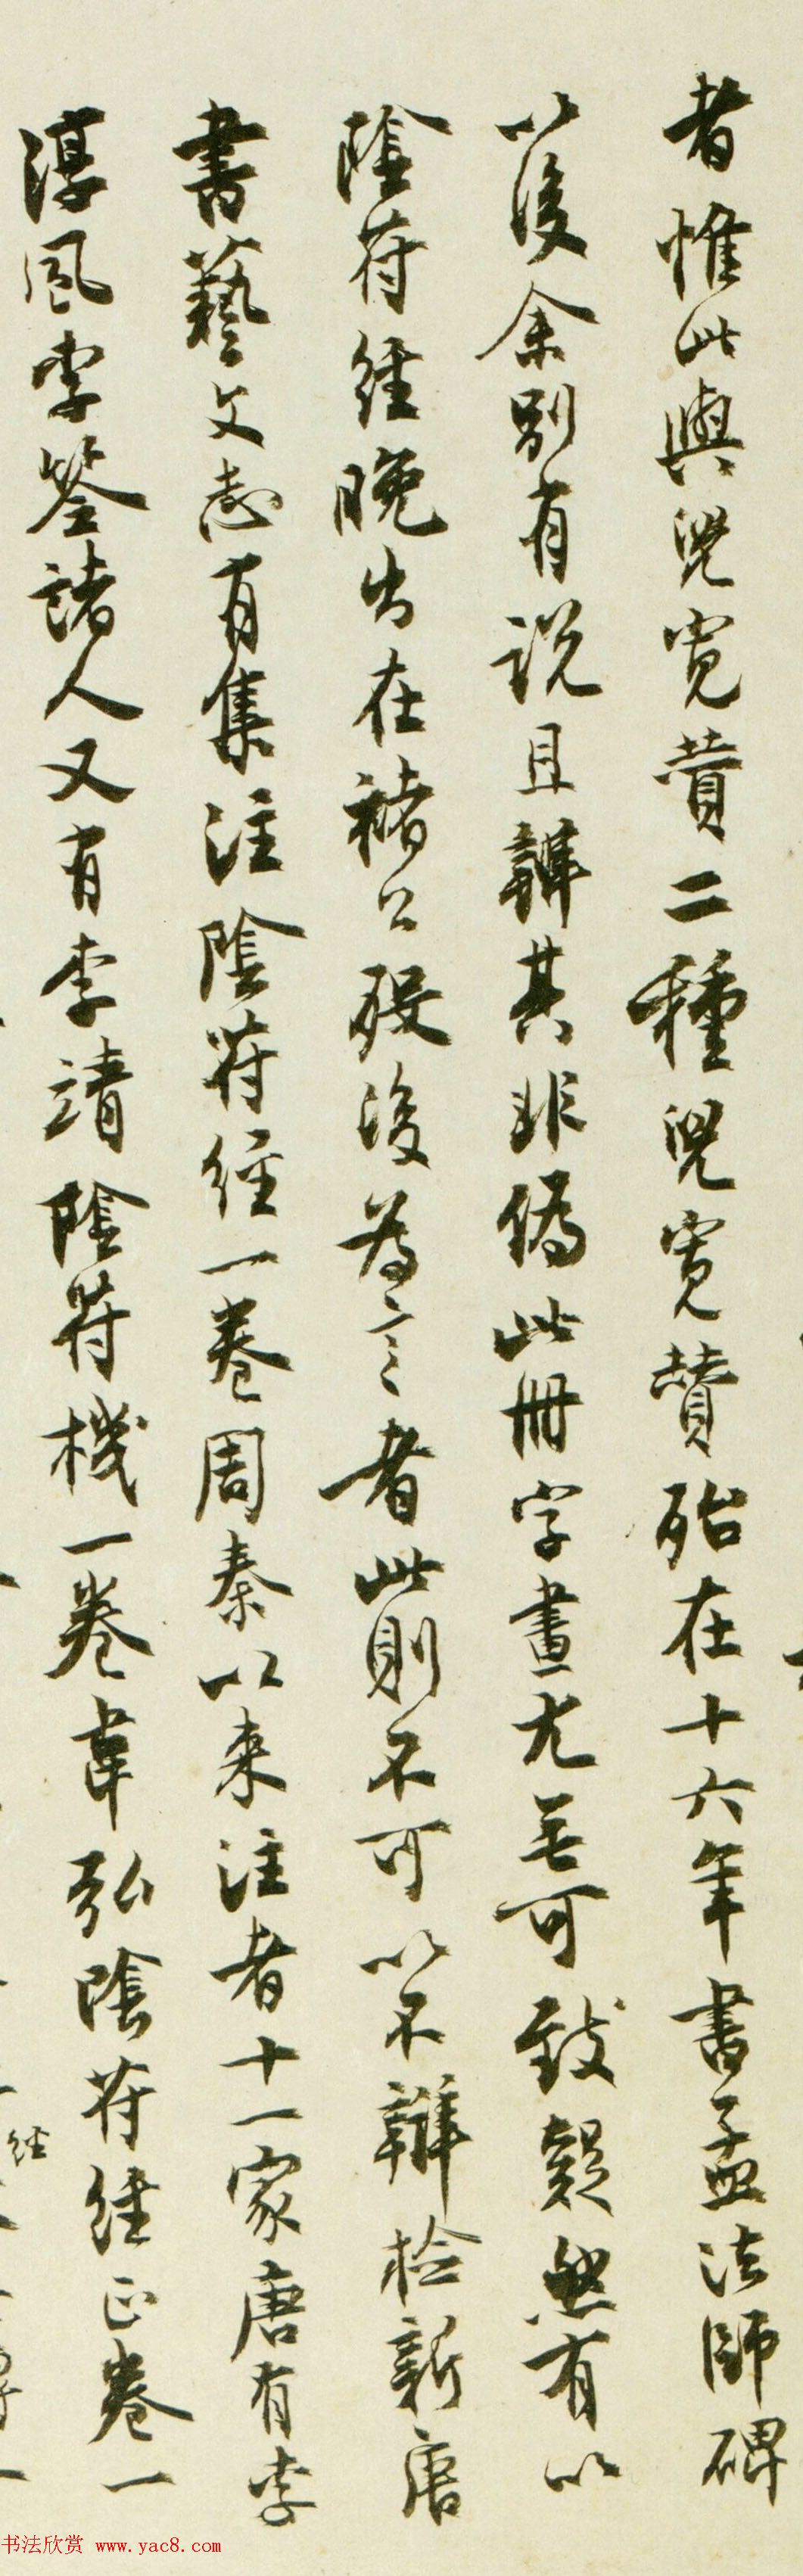 者惟此與兒寛贊二種兒寛贊殆在十六年書孟法師碑
以後余別有說且辨其非僞此冊字畫尤无可致疑然有以
陰符經晚出在褚公歿後為言者此則不可以不辨檢新唐
書藝文志有集注陰符經一卷周秦以来注者十一家唐有李
淳風李筌諸人又有李靖陰符機一卷韋弘陰符經正卷一
經
书法欣赏 www.yac8.com